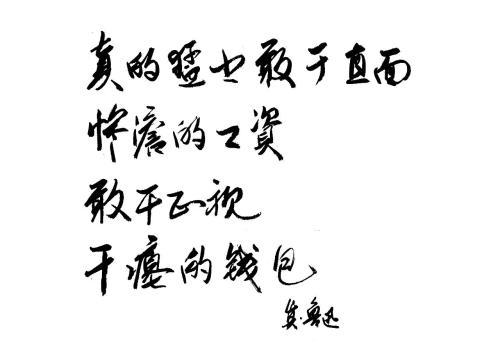 真的猛士敢于直面
惨澹的工资
敢于正视
干瘪的钱包
鲁迅